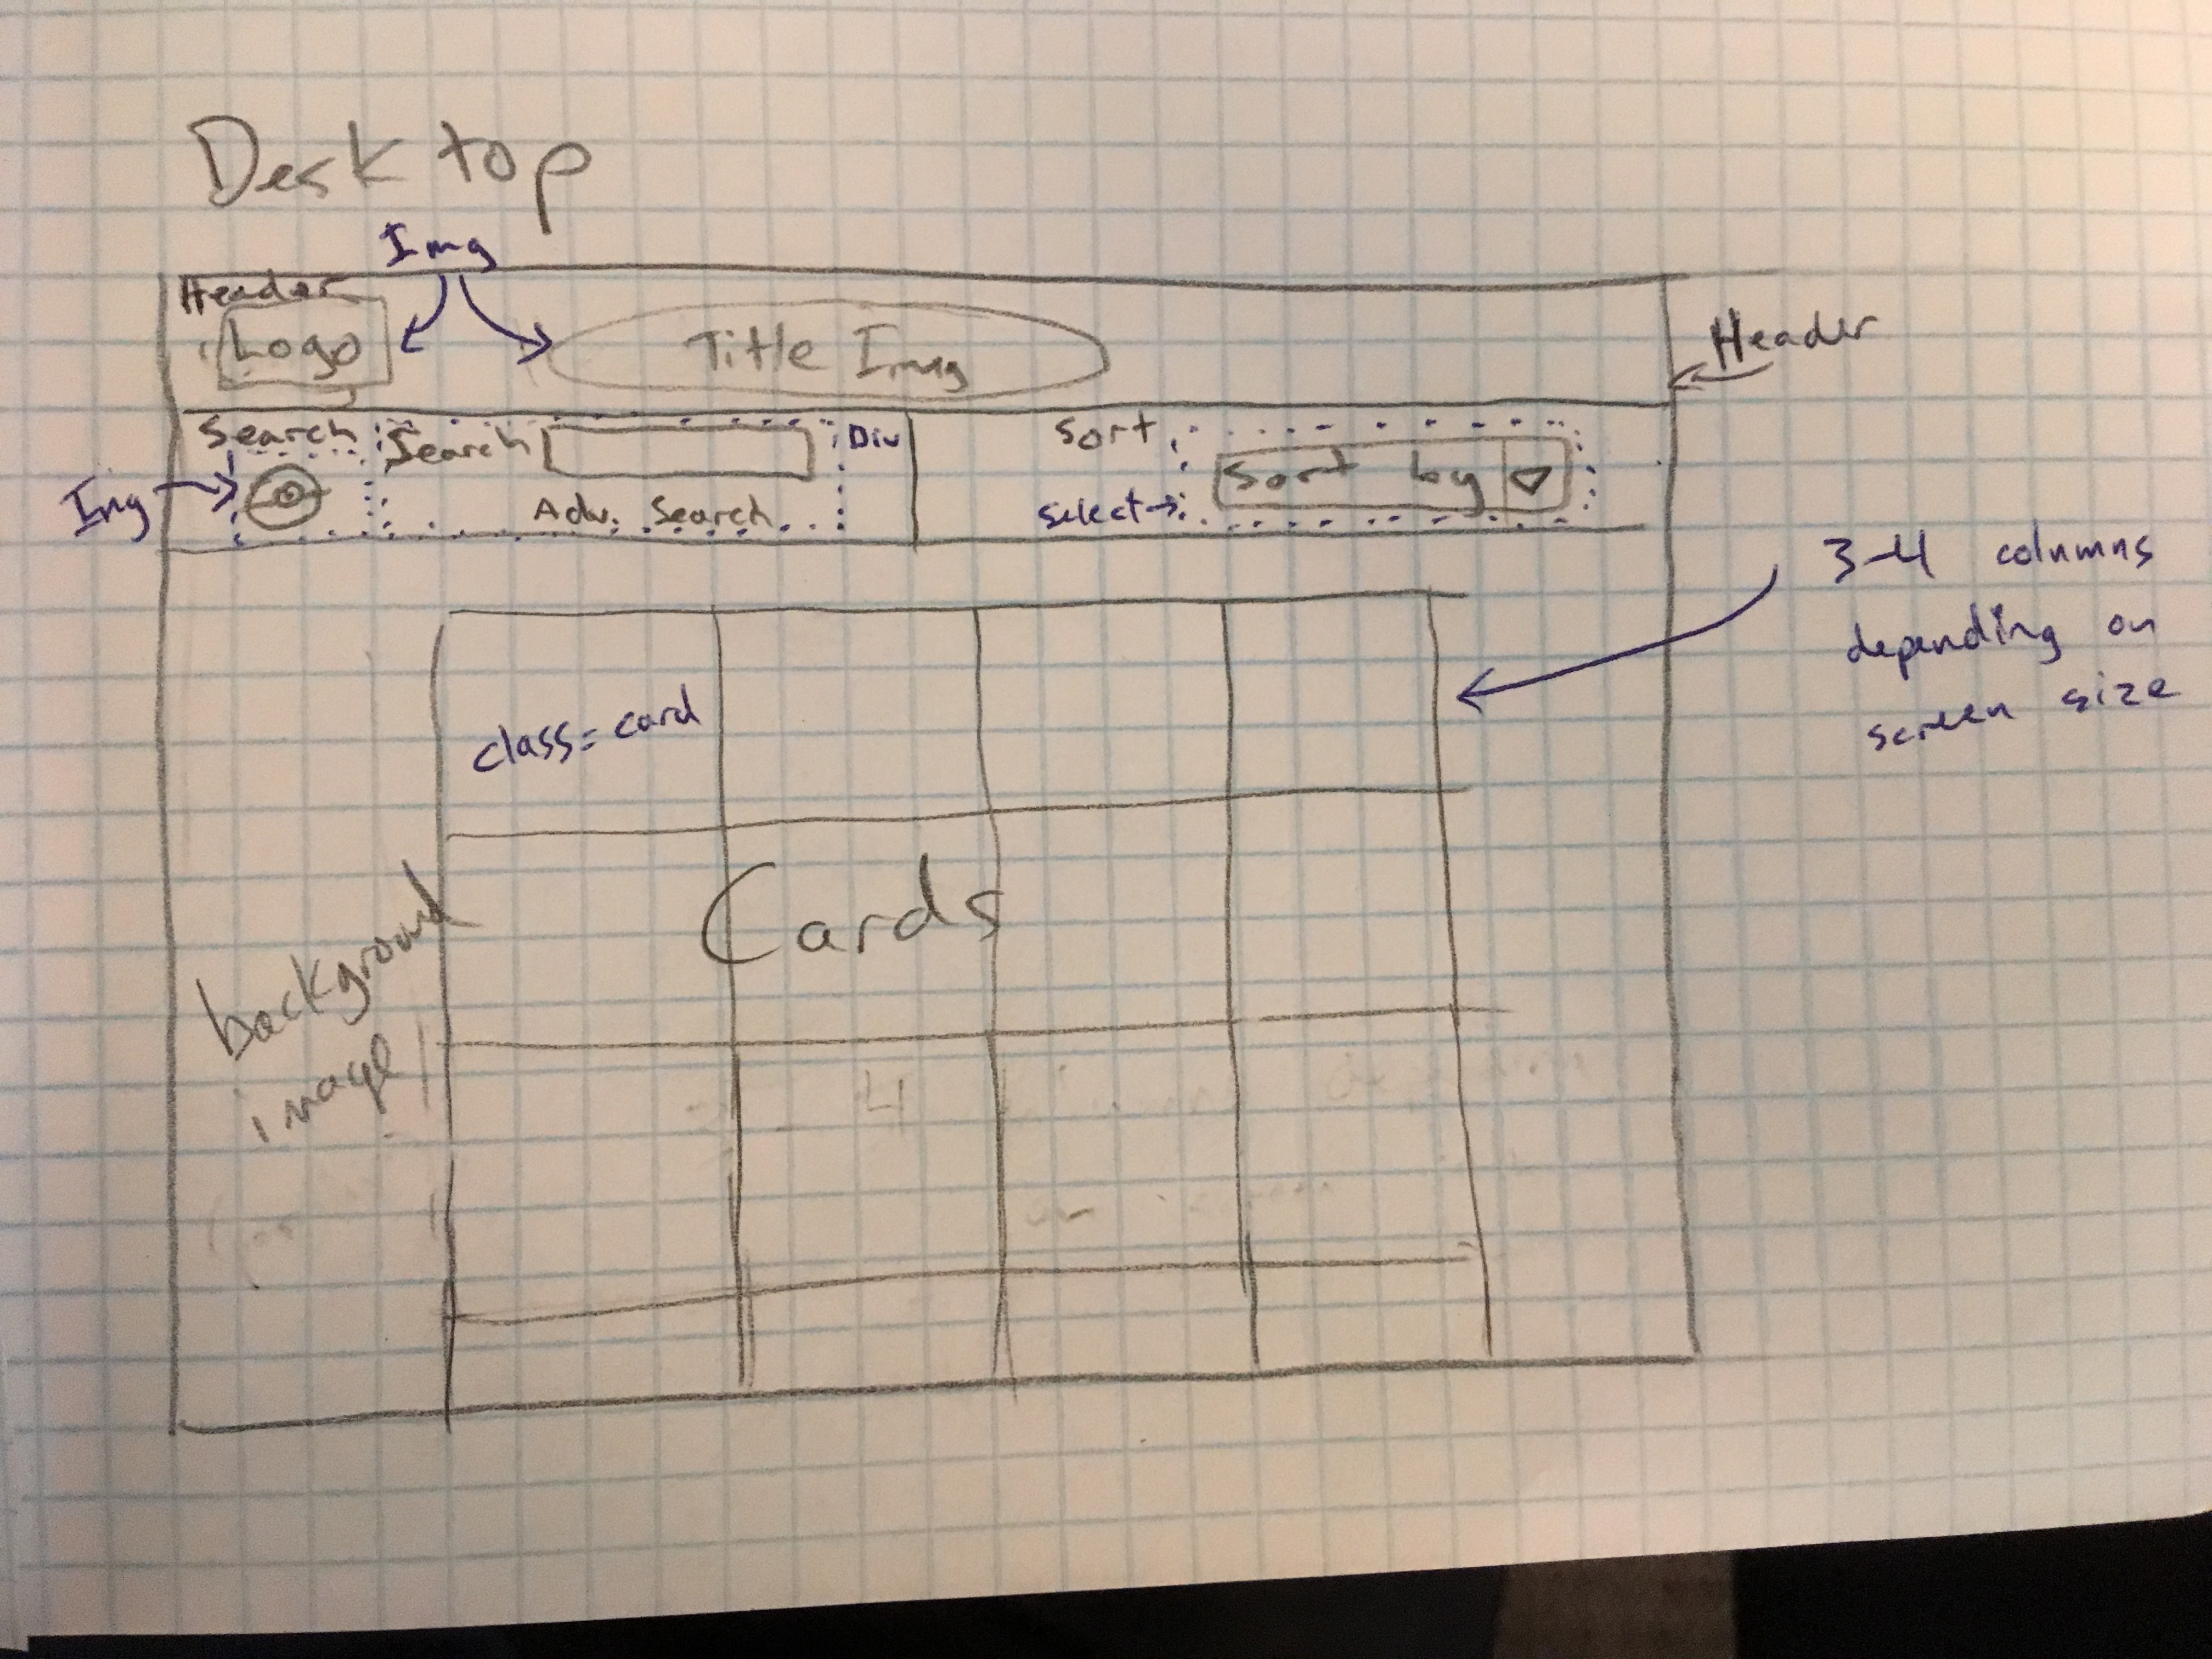 Desktop
Img
Header
Logo
Title Img
Header
Search
Search
Div
Sort
Img
Sort by
Adv. Search
select
3-4 columns
depending on
screen size
class=card
Cards
background
image
4